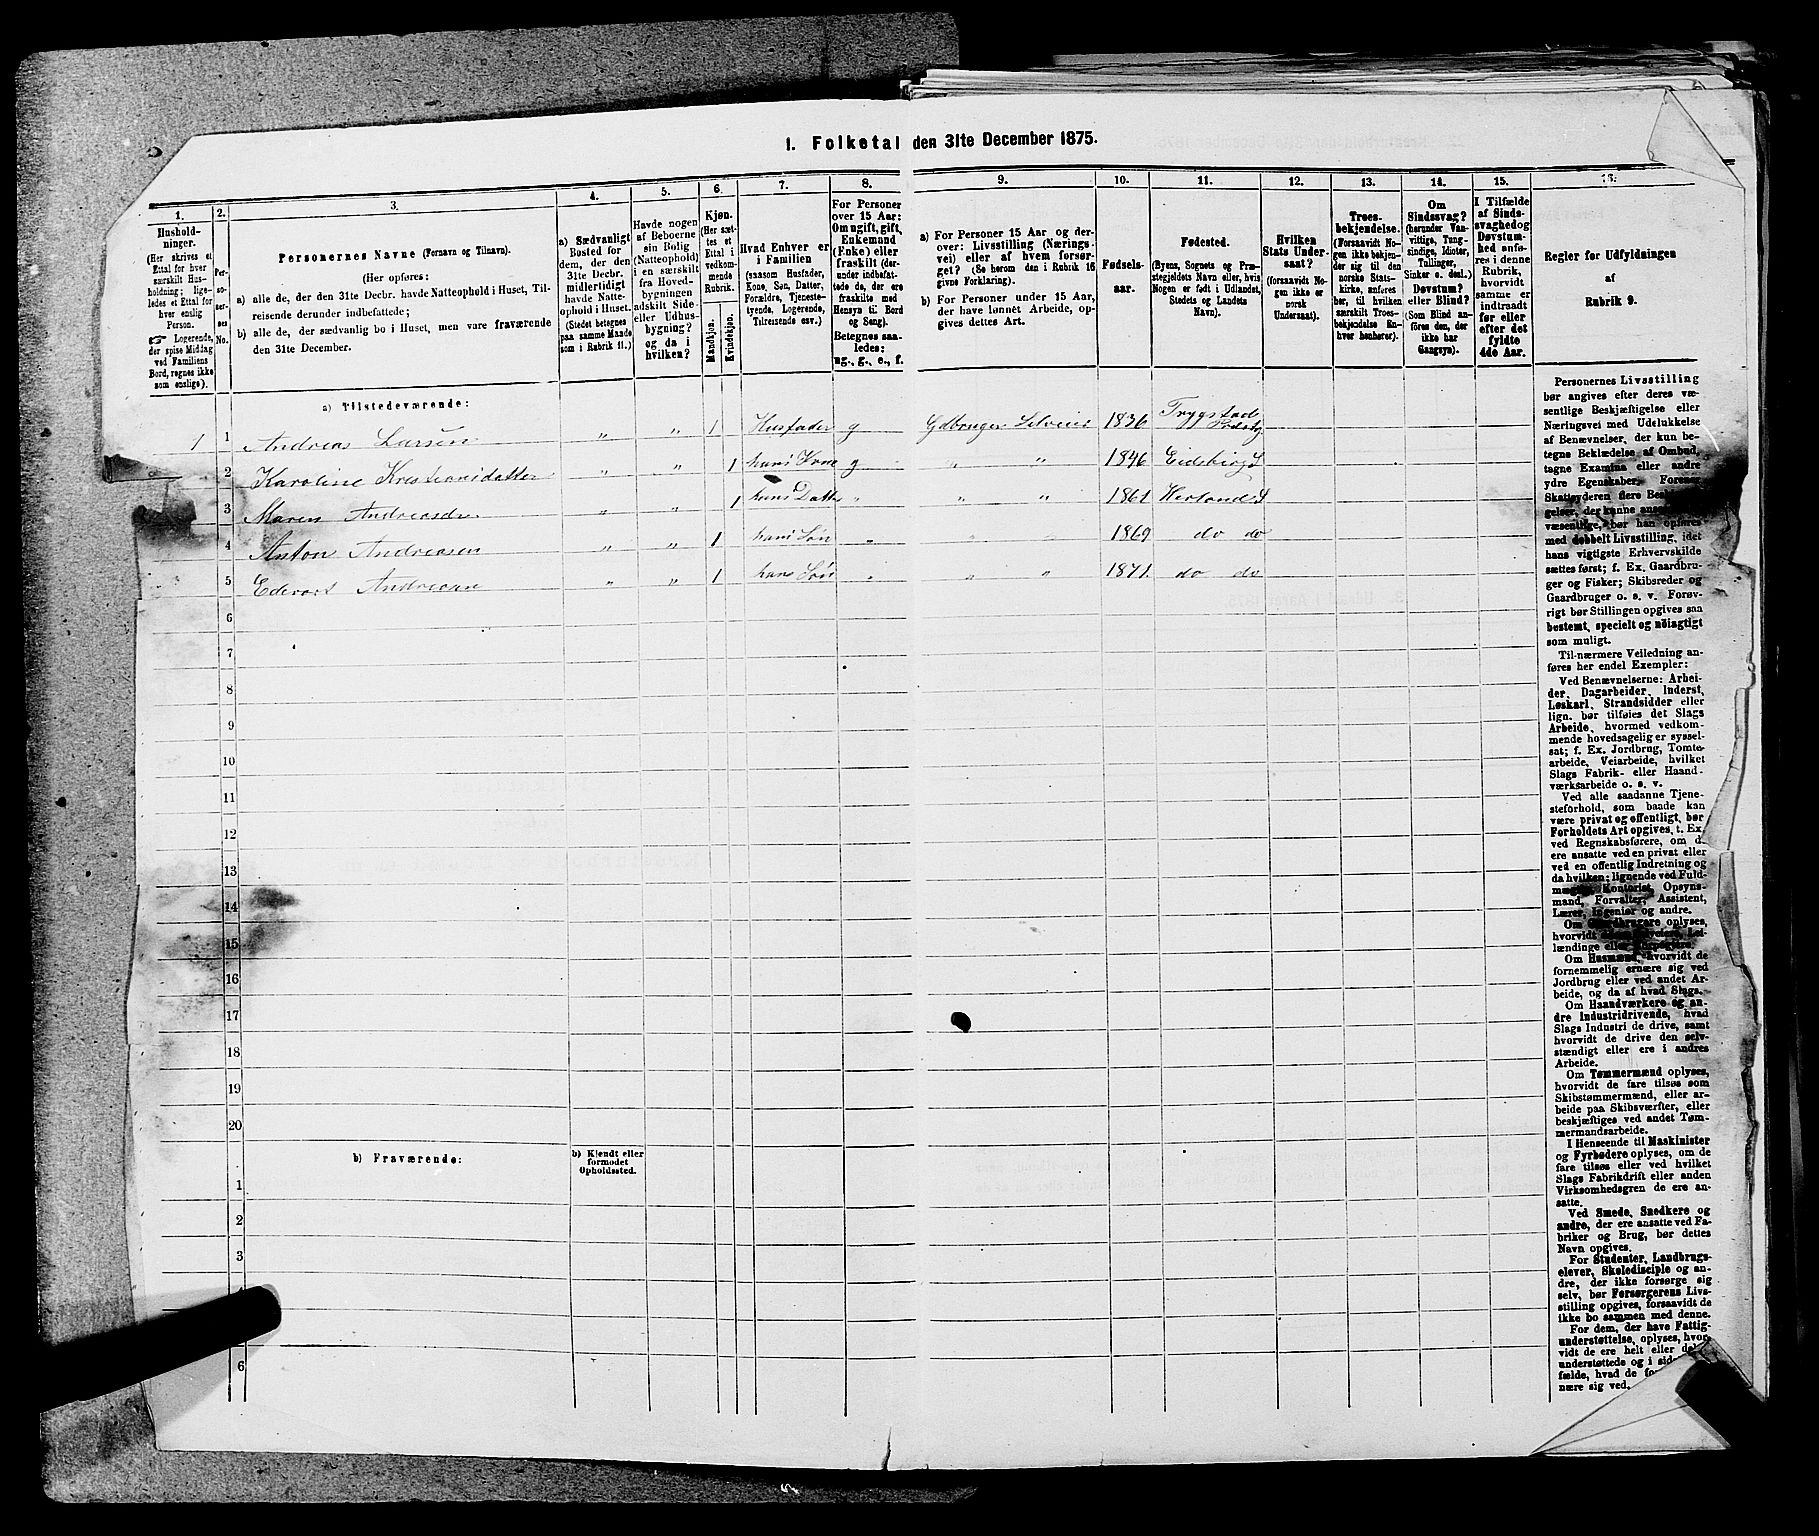 1. Folketal den 31te December 1875.
1. 2. 3. 4. 5. 6. 7. 8. 9. 10. 11. 12. 13. 14. 15. 16.
Hushold-
ninger.
(Her skrives et
Ettal for hver
særskilt Hus-
holdning; lige-
ledes et Ettal for
hver enslig
Person.
☞ Logerende,
der spise Middag
ved Familiens
Bord, regnes ikke
som enslige).
Per-
so-
ner-
nes
No.
Personernes Navne (Fornavn og Tilnavn).
(Her opføres:
a) alle de, der den 31te Decbr. havde Natteophold i Huset, Til-
reisende derunder indbefattede;
b) alle de, der sædvanlig bo i Huset, men vare fraværende
den 31te December.
a) Sædvanligt
Bosted for
dem, der den
31te Decbr.
midlertidigt
havde Natte-
ophold i Huset.
(Stedet betegnes
paa samme Maade
som i Rubrik 11.)
Havde nogen
af Beboerne
sin Bolig
(Natteophold)
i en særskilt
fra Hoved-
bygningen
adskilt Side-
eller Udhus-
bygning?
og da i
hvilken?
Kjøn.
(Her sæt-
tes et
Ettal i
vedkom-
mende
Rubrik.
Mandkjøn.
Kvindekjøn.
Hvad Enhver er
i Familien
(saasom Husfader,
Kone, Søn, Datter,
Forældre, Tjeneste-
tyende, Logerende,
Tilreisende osv.)
For Personer
over 15 Aar:
Om ugift, gift,
Enkemand
(Enke) eller
fraskilt (der-
under indbefat-
tede de, der ere
fraskilte med
Hensyn til Bord
og Seng).
Betegnes saa-
ledes:
ug., g., e., f.
a) For Personer 15 Aar og der-
over: Livsstilling (Nærings-
vei) eller af hvem forsør-
get? (Se herom den i Rubrik 16
givne Forklaring).
b) For Personer under 15 Aar,
der have lønnet Arbeide, op-
gives dettes Art.
Fødsels-
aar.
Fødested.
(Byens, Sognets og Præ-
stegjeldets Navn eller, hvis
Nogen er født i Udlandet,
Stedets og Landets
Navn).
Hvilken
Stats Under-
saat?
(forsaavidt No-
gen ikke er
norsk
Undersaat).
Troes-
bekjendelse.
(Forsaavidt No-
gen ikke bekjen-
der sig til den
norske Stats-
kirke, anføres
her, til hvilken
særskilt Troes-
bekjendelse En-
hver henhører).
Om
Sindssvag?
(herunder Van-
vittige, Tung-
sindige, Idioter,
Tullinger,
Sinker o. desl.)
Døvstum?
eller Blind?
(Som Blind an-
føres den, der
ikke har
Gangsyn).
I Tilfælde
af Sinds-
svaghed og
Døvstum-
hed anfø-
res i denne
Rubrik,
hvorvidt
samme er
indtraadt
før eller
efter det
fyldte
4de Aar.
Regler for Udfyldningen
af
Rubrik 9.
a) Tilstedeværende:
1 1 Andreas Larsen „ „ 1 Husfader g Gdbruger Selveier 1836 Trygstad
2 Karoline Kristiansdatter „ „ 1 hans Kone g „ „ 1846 Eidsberg
3 Maren Andreasdr „ „ 1 hans Datter „ „ „ 1861 Herland S
4 Anton Andreasen „ „ 1 hans Søn „ „ „ 1869 do do
5 Edvart Andreasen „ „ 1 hans Søn „ „ „ 1871 do do
6
7
8
9
10
11
12
13
14
15
16
17
18
19
20
b) Fraværende:
b) Kjendt eller
formodet
Opholdssted.
1
2
3
4
6
Personernes Livsstilling
bør angives efter deres væ-
sentlige Beskjæftigelse eller
Næringsvei med Udelukkelse
af Benævnelser, der kun be-
tegne Beklædelse af Ombud,
tagne Examina eller andre
ydre Egenskaber. Forener
Skatteyderen flere Beskjæfti-
gelser, der kunne ansees som
væsentlige, bør han opføres
med dobbelt Livsstilling, idet
hans vigtigste Erhvervskilde
sættes først; f. Ex. Gaardbru-
ger og Fisker; Skibsreder og
Gaardbruger o. s. v. Forøv-
rigt bør Stillingen opgives saa
bestemt, specielt og nøiagtigt
som muligt.
Til nærmere Veiledning an-
føres her endel Exempler:
Ved Benævnelserne: Arbei-
der, Dagarbeider, Inderst,
Løskarl, Strandsidder eller
lign. bør tilføies det Slags
Arbeide, hvormed vedkom-
mende hovedsagelig er syssel-
sat; f. Ex. Jordbrug, Tomte-
arbeide, Veiarbeide, hvilket
Slags Fabrik- eller Haand-
værksarbeide o. s. v.
Ved alle saadanne Tjene-
steforhold, som baade kan
være privat og offentligt, bør
Forholdets Art opgives, t. Ex.
ved Regnskabsførere, om de
ere ansatte ved en privat eller
ved en offentlig Indretning og
da hvilken; lignende ved Fuld-
mægtig, Kontorist, Opsyns-
mand, Forvalter, Assistent,
Lærer, Ingeniør og andre.
Om Gaardbrugere oplyses,
hvorvidt de ere Selveiere, Lei-
lændinge eller Forpagtere.
Om Husmænd, hvorvidt de
fornemmelig ernære sig ved
Jordbrug eller ved andet Ar-
beide, og da af hvad Slags.
Om Haandværkere og an-
dre Industridrivende, hvad
Slags Industri de drive, samt
hvorvidt de drive den selv-
stændigt eller ere i andres
Arbeide.
Om Tømmermænd oplyses,
hvorvidt de fare tilsøs som
Skibstømmermænd, eller ar-
beide paa Skibsværfter, eller
beskjæftiges ved andet Tøm-
mermandsarbeide.
I Henseende til Maskinister
og Fyrbødere oplyses, om de
fare tilsøs eller ved hvilket
Slags Fabrikdrift eller anden
Virksomhedsgren de ere an-
satte.
Ved Smede, Snedkere og
andre, der ere ansatte ved Fa-
briker og Brug, bør dettes
Navn opgives.
For Studenter, Landbrugs-
elever, Skoledisciple og an-
dre, der ikke forsørge sig
selv, bør Forsørgerens Livs-
stilling opgives, forsaavidt de
ikke bo sammen med denne.
For dem, der have Fattig-
understøttelse, oplyses, hvor-
vidt de ere helt eller delvis
understøttede og i sidste
fælde, hvad de for
nære sig ved.